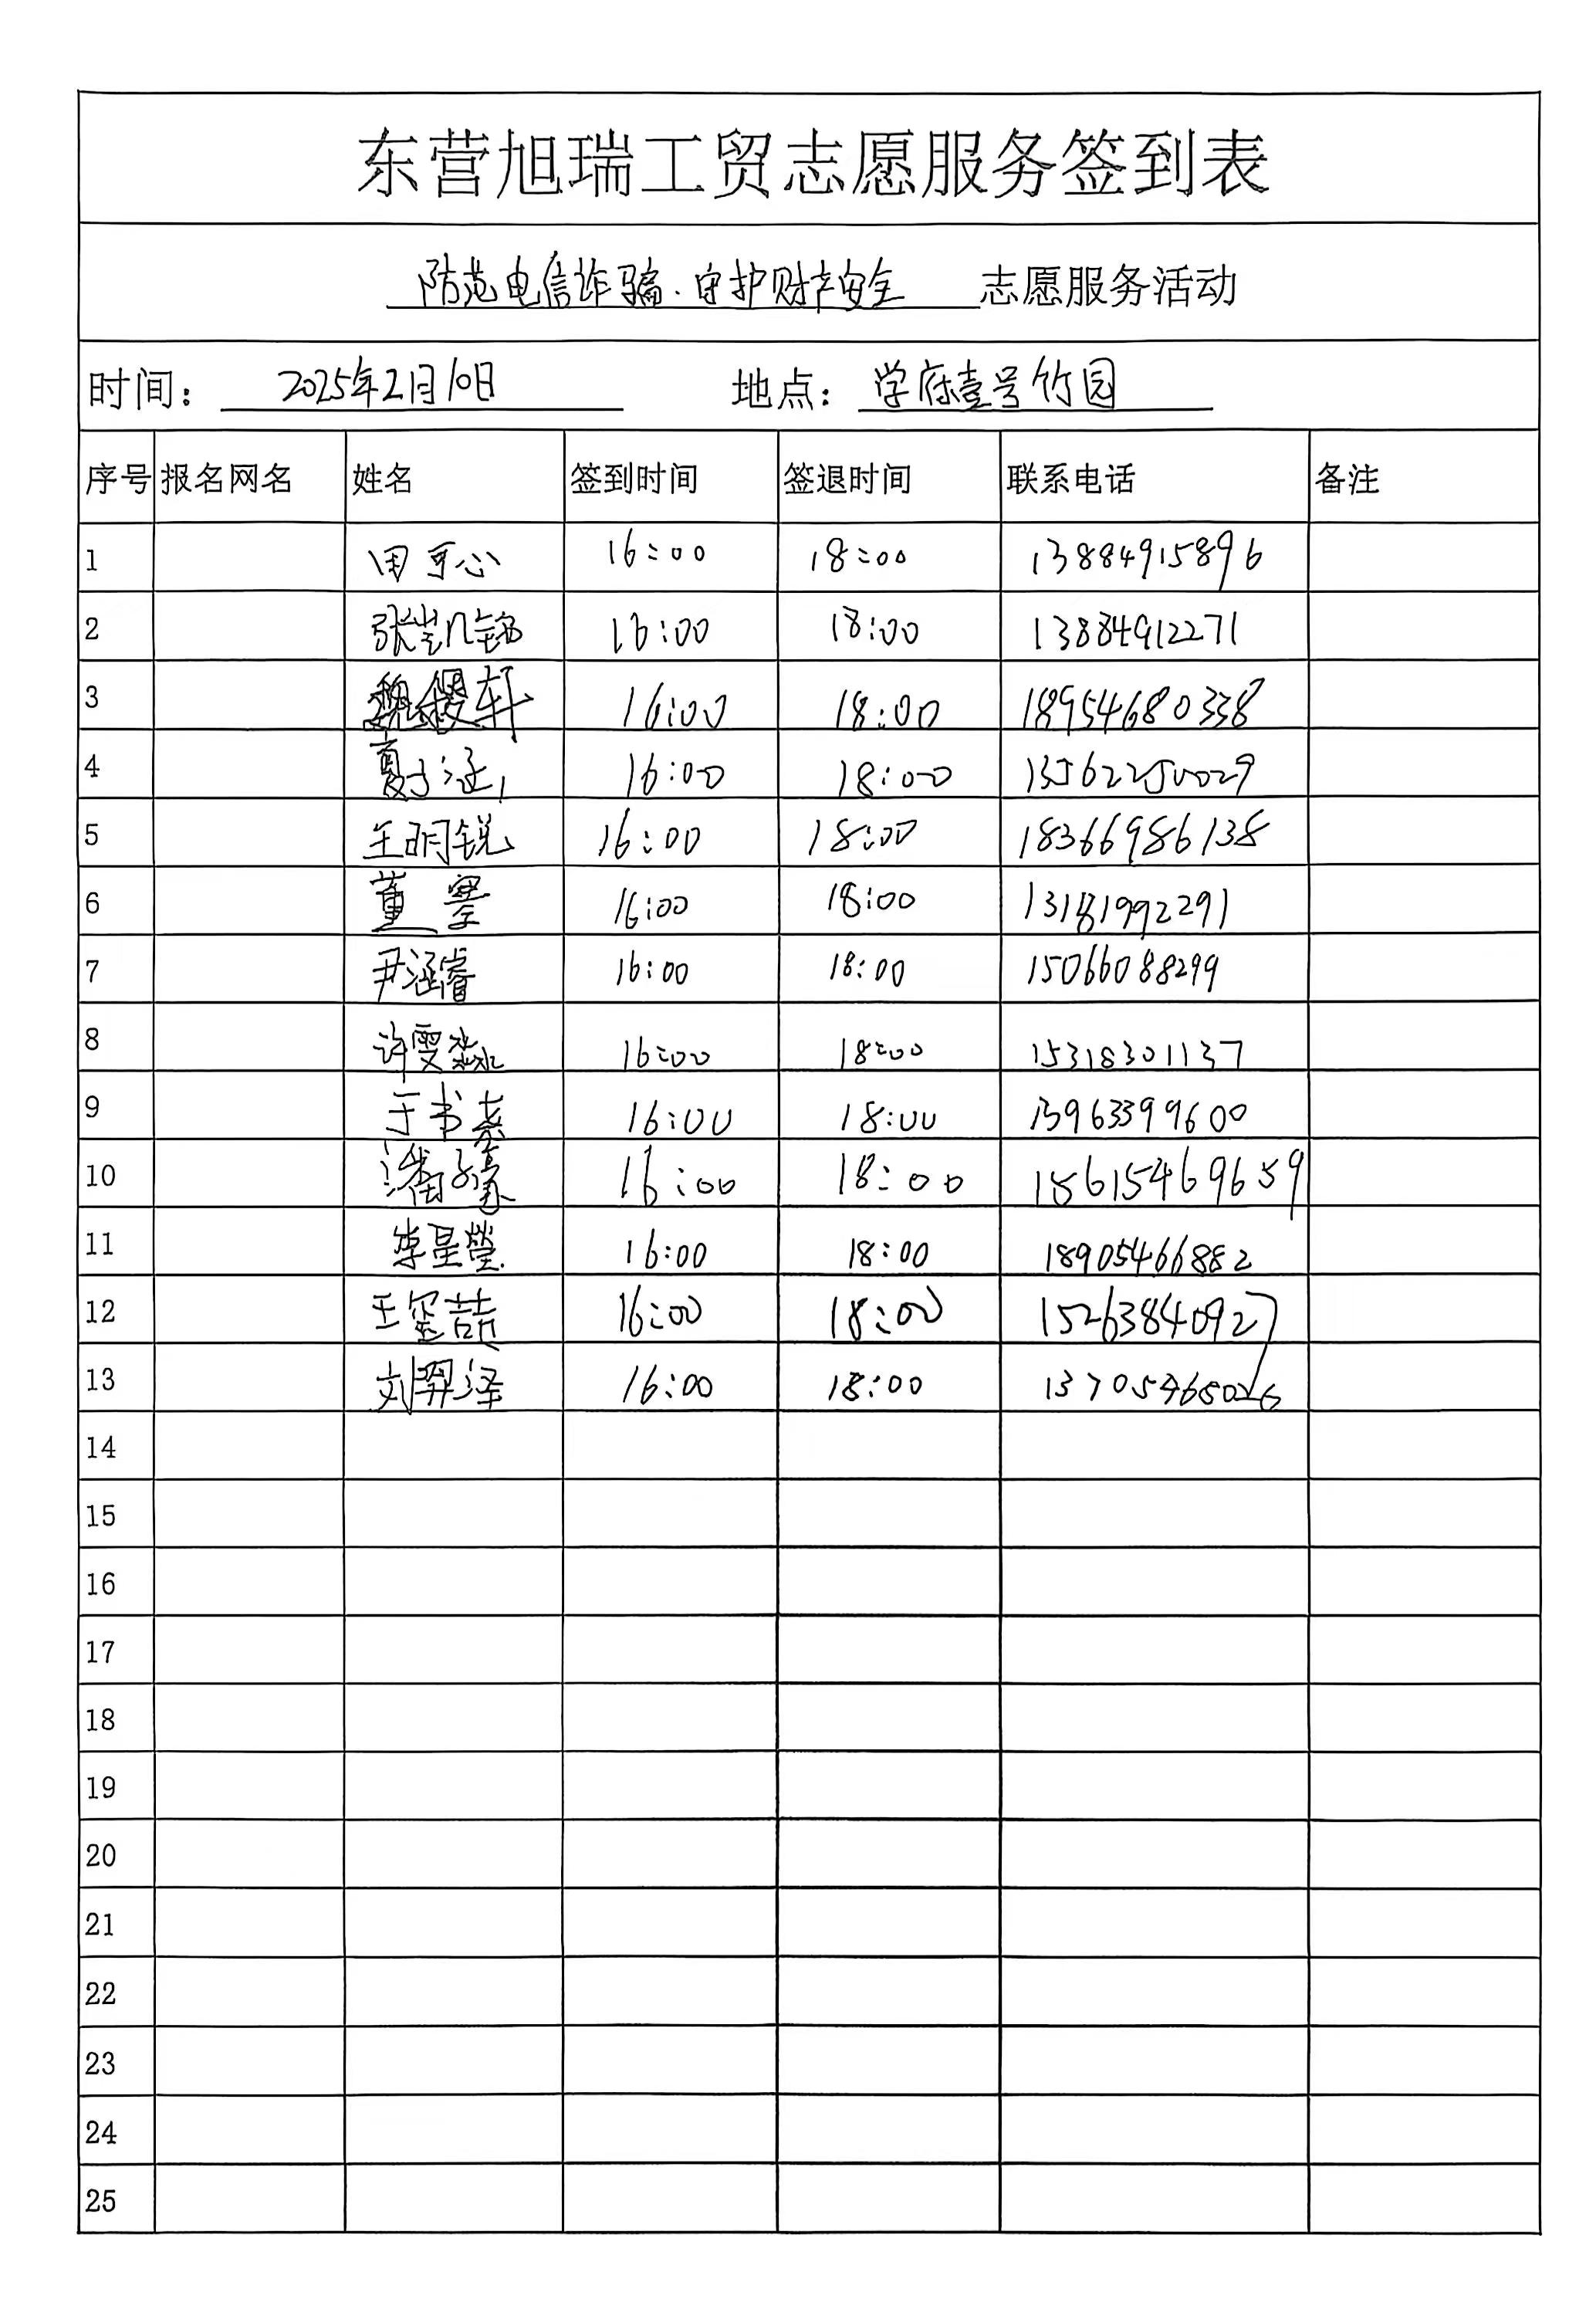 东营旭瑞工贸志愿服务签到表
防范电信诈骗.守护财产安全 志愿服务活动
时间： 2025年2月10日 地点： 学府壹号竹园
序号 报名网名 姓名 签到时间 签退时间 联系电话 备注
1 田可心 16:00 18:00 13884915896
2 张凯铭 16:00 18:00 13884912271
3 魏缦轩 16:00 18:00 18954680338
4 夏子涵 16:00 18:00
5 王明锐 16:00 18:00 18366986138
6 董 16:00 18:00 13181992291
7 尹涵睿 16:00 18:00 15066088299
8 许雯淼 16:00 18:00 15318301137
9 于书尧 16:00 18:00 13963399600
10 潘子豪 16:00 18:00 15615469659
11 李星莹 16:00 18:00 18905466882
12 王玺喆 16:00 18:00 15263840927
13 刘羿泽 16:00 18:00 13705465026
14
15
16
17
18
19
20
21
22
23
24
25